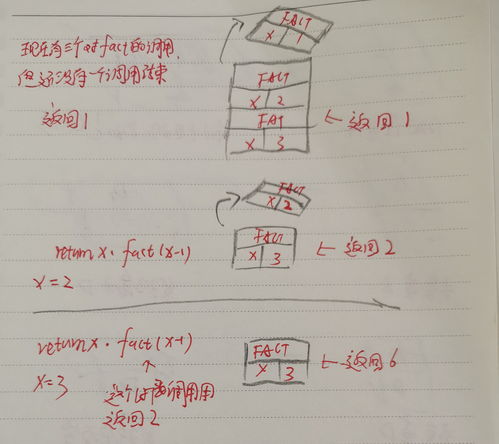 FACT
X 1
现在有三个对fact的调用,
但还没有一个调用结束
FACT
X 2
返回1
FAT
← 返回1
X 3
FACT
X 2
return x · fact(x-1)
FACT
X 3
← 返回2
X=2
return x · fact(x-1)
FACT
X 3
← 返回6
X=3
这个对调用用
返回2